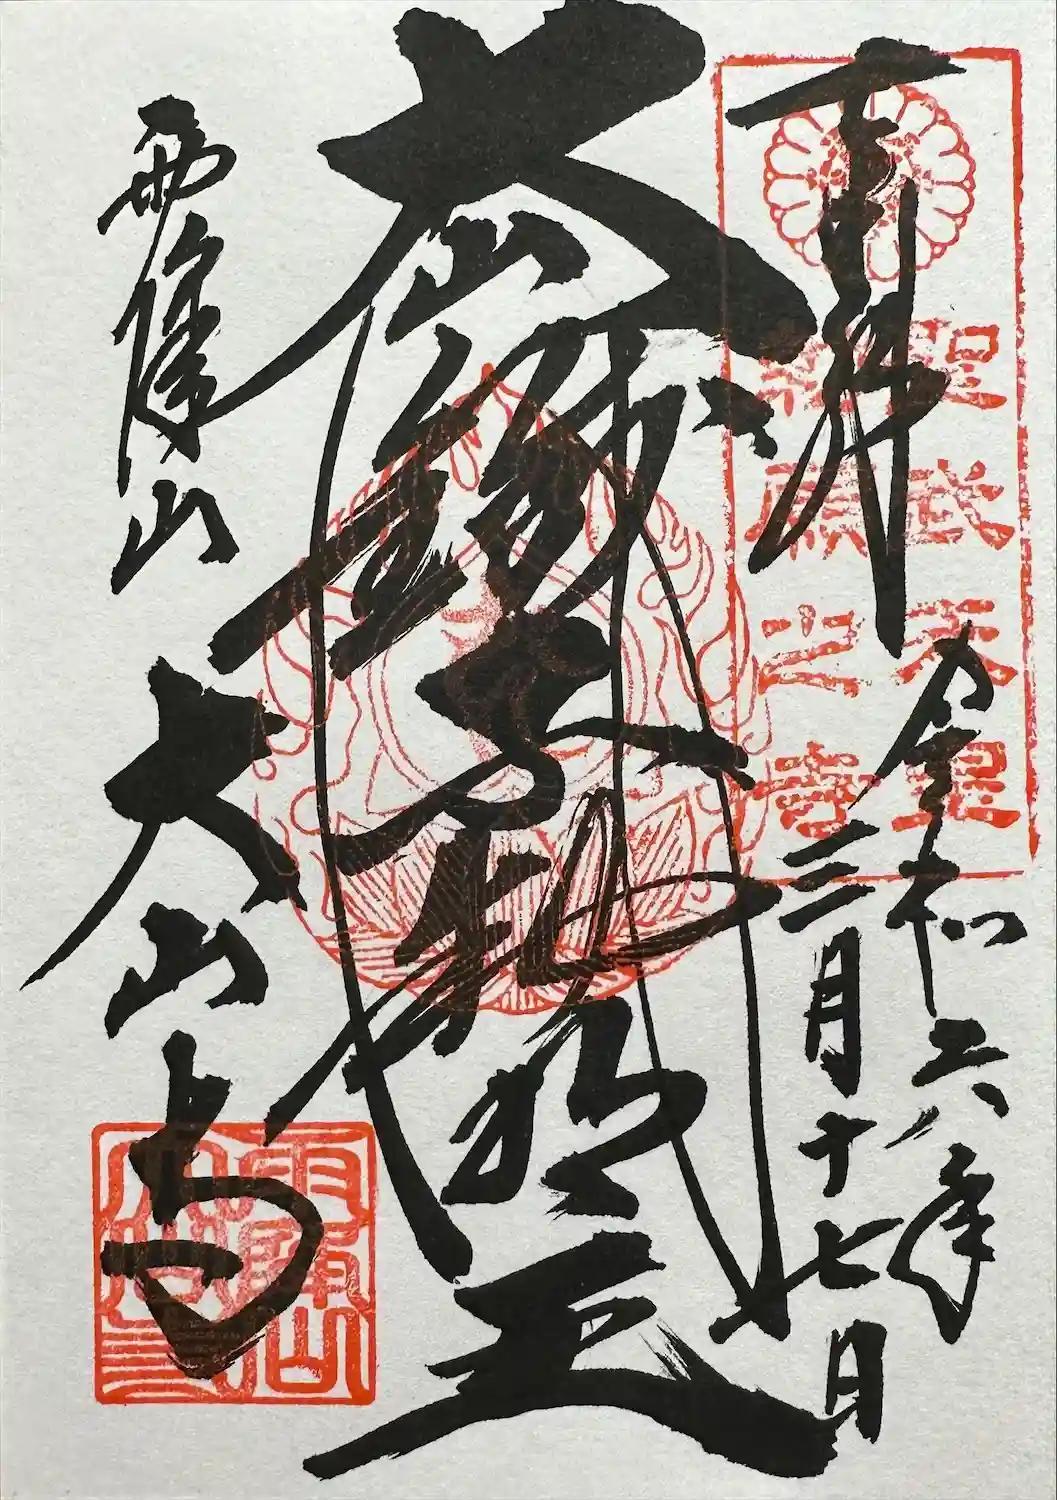 奉拝
聖武天皇
勅願之寺
令和六年
三月十七日
大山鐵不動明王
雨降山 大山寺